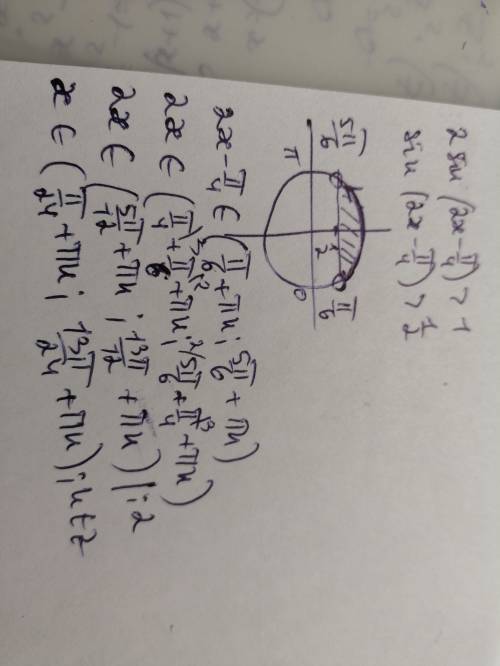 2 sin (2x - π/4) > 1
sin (2x - π/4) > 1/2
5π/6
π
1/2
0
π/6
2x - π/4 ∈ (π/6 + πn; 5π/6 + πn)
2x ∈ (π/4 + π/6 + πn; 5π/6 + π/4 + πn)
2x ∈ (5π/12 + πn; 13π/12 + πn) |:2
x ∈ (π/24 + πn; 13π/24 + πn); n∈Z